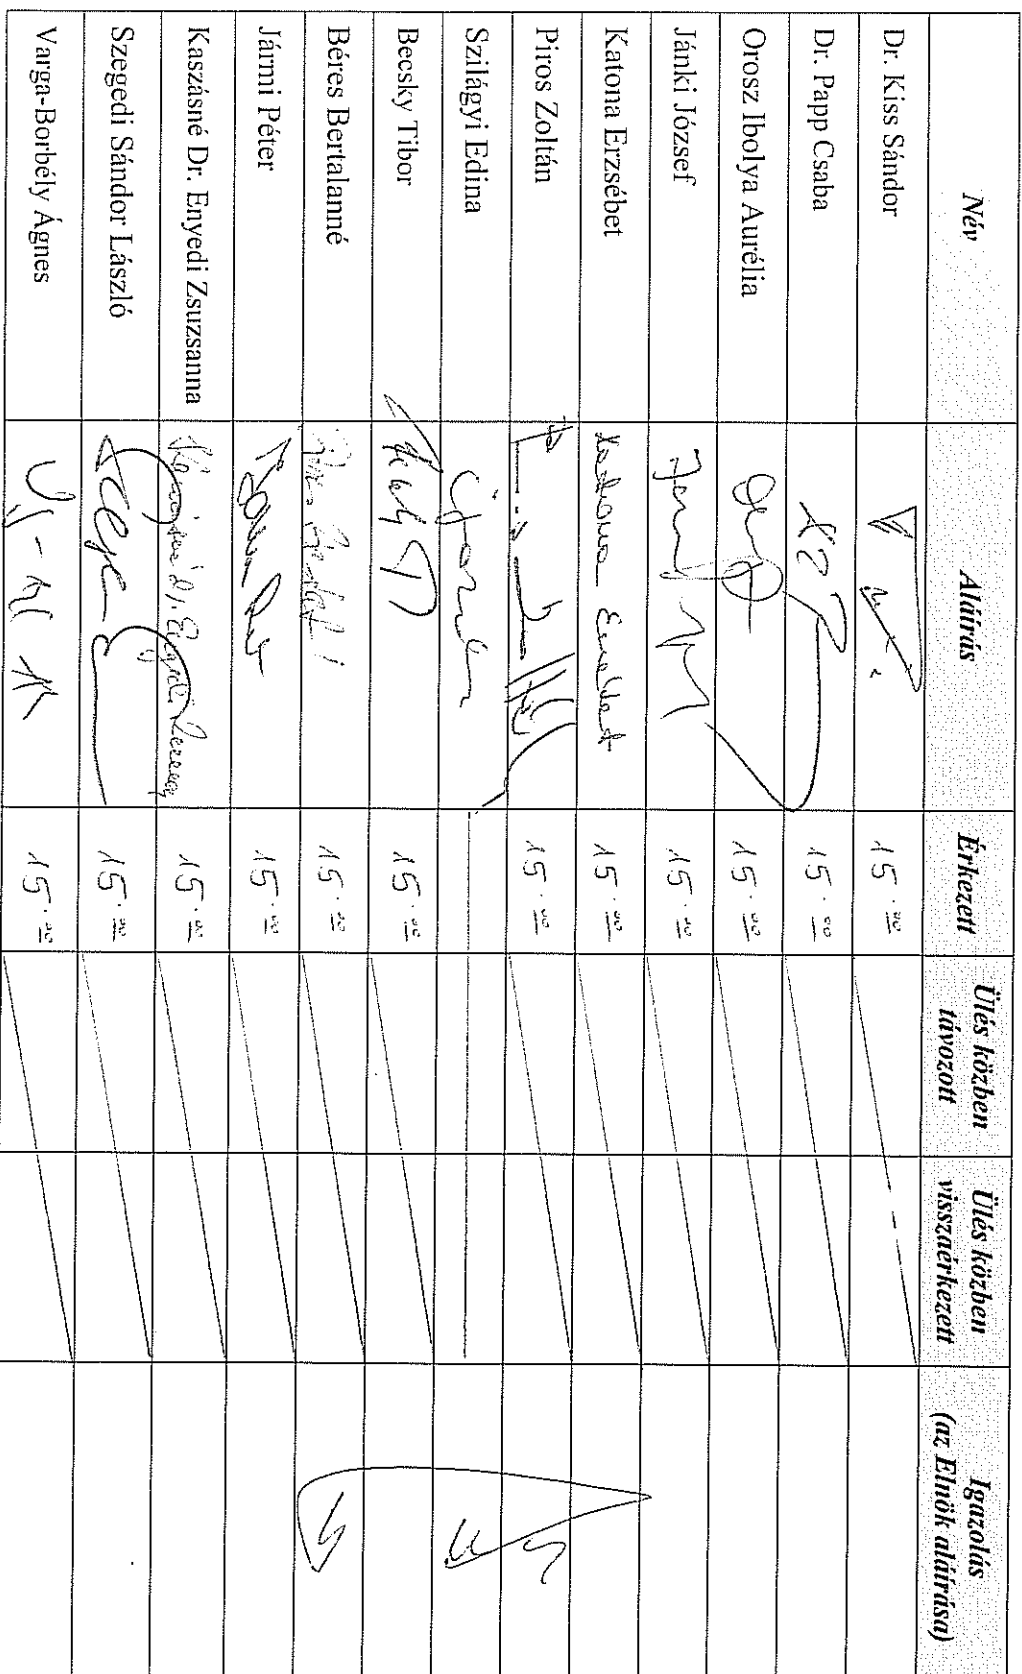 Név Aláírás Érkezett Ülés közben távozott Ülés közben visszaérkezett Igazolás (az Elnök aláírása)
Dr. Kiss Sándor 15.00
Dr. Papp Csaba 15.00
Orosz Ibolya Aurélia 15.00
Jánki József 15.00
Katona Erzsébet Katona Erzsébet 15.00
Piros Zoltán 15.00
Szilágyi Edina
Becsky Tibor 15.00
Béres Bertalanné 15.00
Jármi Péter 15.00
Kaszásné Dr. Enyedi Zsuzsanna 15.00
Szegedi Sándor László 15.00
Varga-Borbély Ágnes 15.00